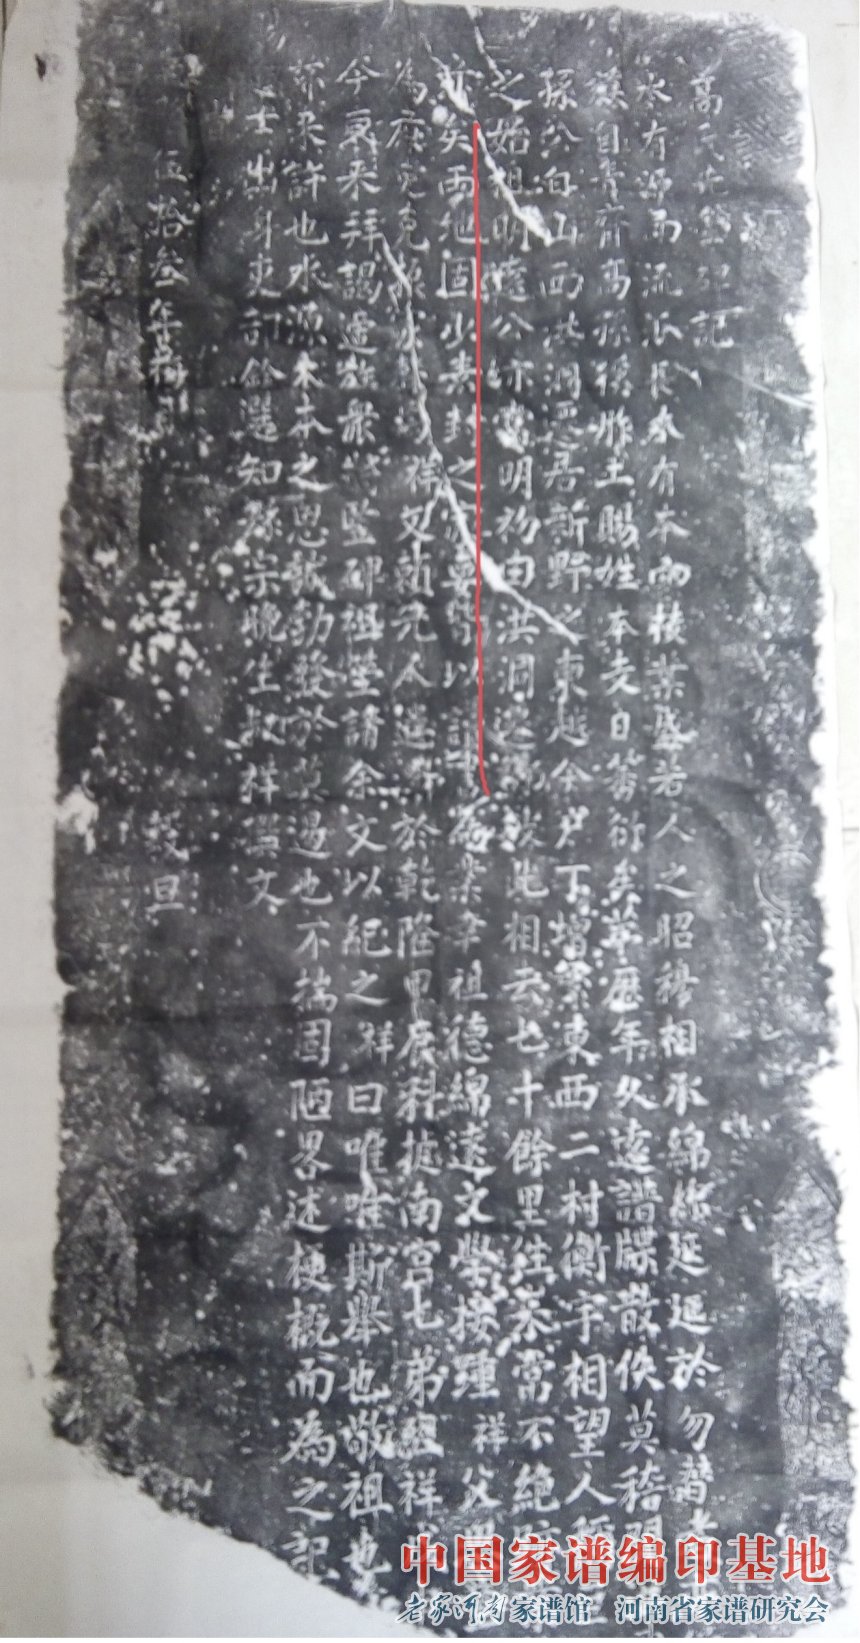 高氏先塋碑記
水有源而流派長木有本而枝葉盛若人之昭穆相承綿綿延延於勿替者
族自青齊高祚後胙土賜姓本支日蕃衍矣第歷年久遠譜牒散佚莫稽明
孫公自山西洪洞遷居新野之東越今戶丁增繁東西二村衡宇相望人
之始祖明遠公亦當明初由洪洞遷 彼此相去七十餘里往來常不絕
矣兩地固少素封之家要皆以讀書為業幸祖德綿遠文學接踵祥父
為庠 克 祥文 先人遺 於乾隆甲辰科捷南宮七弟 祥
今衷來拜謁遠族眾 豎碑祖塋請余文以紀之祥曰唯唯斯舉也敬祖也
來許也水源木本之思誠勃發於莫遏也不揣固陋畧述梗概而為之記
士出身吏部餘選知縣宗晚生 祥撰文
伍拾叁年 穀旦
中国家谱编印基地
老家河南家谱馆 河南省家谱研究会